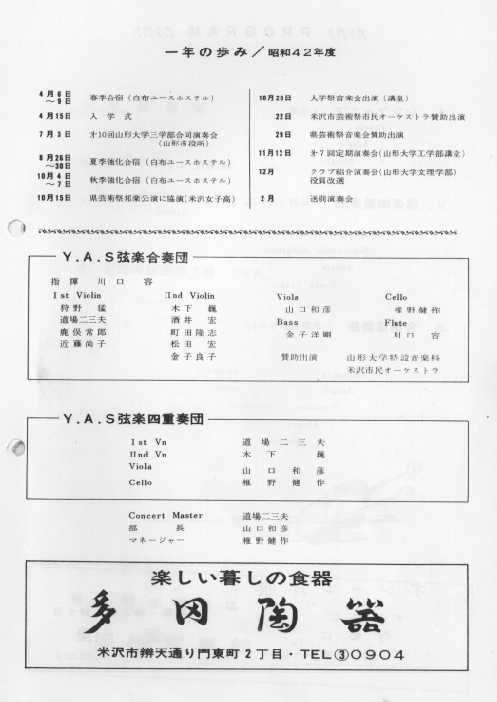 一年の歩み／昭和42年度
4月6日～9日 春季合宿（白布ユースホステル）
4月15日 入学式
7月3日 才10回山形大学三学部合同演奏会（山形市役所）
8月26日～30日 夏季強化合宿（白布ユースホステル）
10月4日～7日 秋季強化合宿（白布ユースホステル）
10月15日 県芸術祭邦楽公演に協演（米沢女子高）
10月20日 大学祭音楽会出演（講堂）
22日 米沢市芸術祭市民オーケストラ賛助出演
29日 県芸術祭音楽会賛助出演
11月12日 才7回定期演奏会（山形大学工学部講堂）
12月 クラブ紹介演奏会（山形大学文理学部）
役員改選
2月 送別演奏会
Y.A.S弦楽合奏団
指揮 川口 容
Ist Violin
狩野 猛
道場二三夫
鹿俣常郎
近藤尚子
IInd Violin
木下 颯
酒井 宏
町田隆志
松田 宏
金子良子
Viola
山口和彦
Bass
金子洋剛
Cello
椎野健作
Flute
川口 容
賛助出演 山形大学特設音楽科
米沢市民オーケストラ
Y.A.S弦楽四重奏団
Ist Vn 道場二三夫
IInd Vn 木下 颯
Viola 山口和彦
Cello 椎野健作
Concert Master 道場二三夫
部長 山口和彦
マネージャー 椎野健作
楽しい暮しの食器
多田陶器
米沢市辨天通り門東町2丁目・TEL③0904